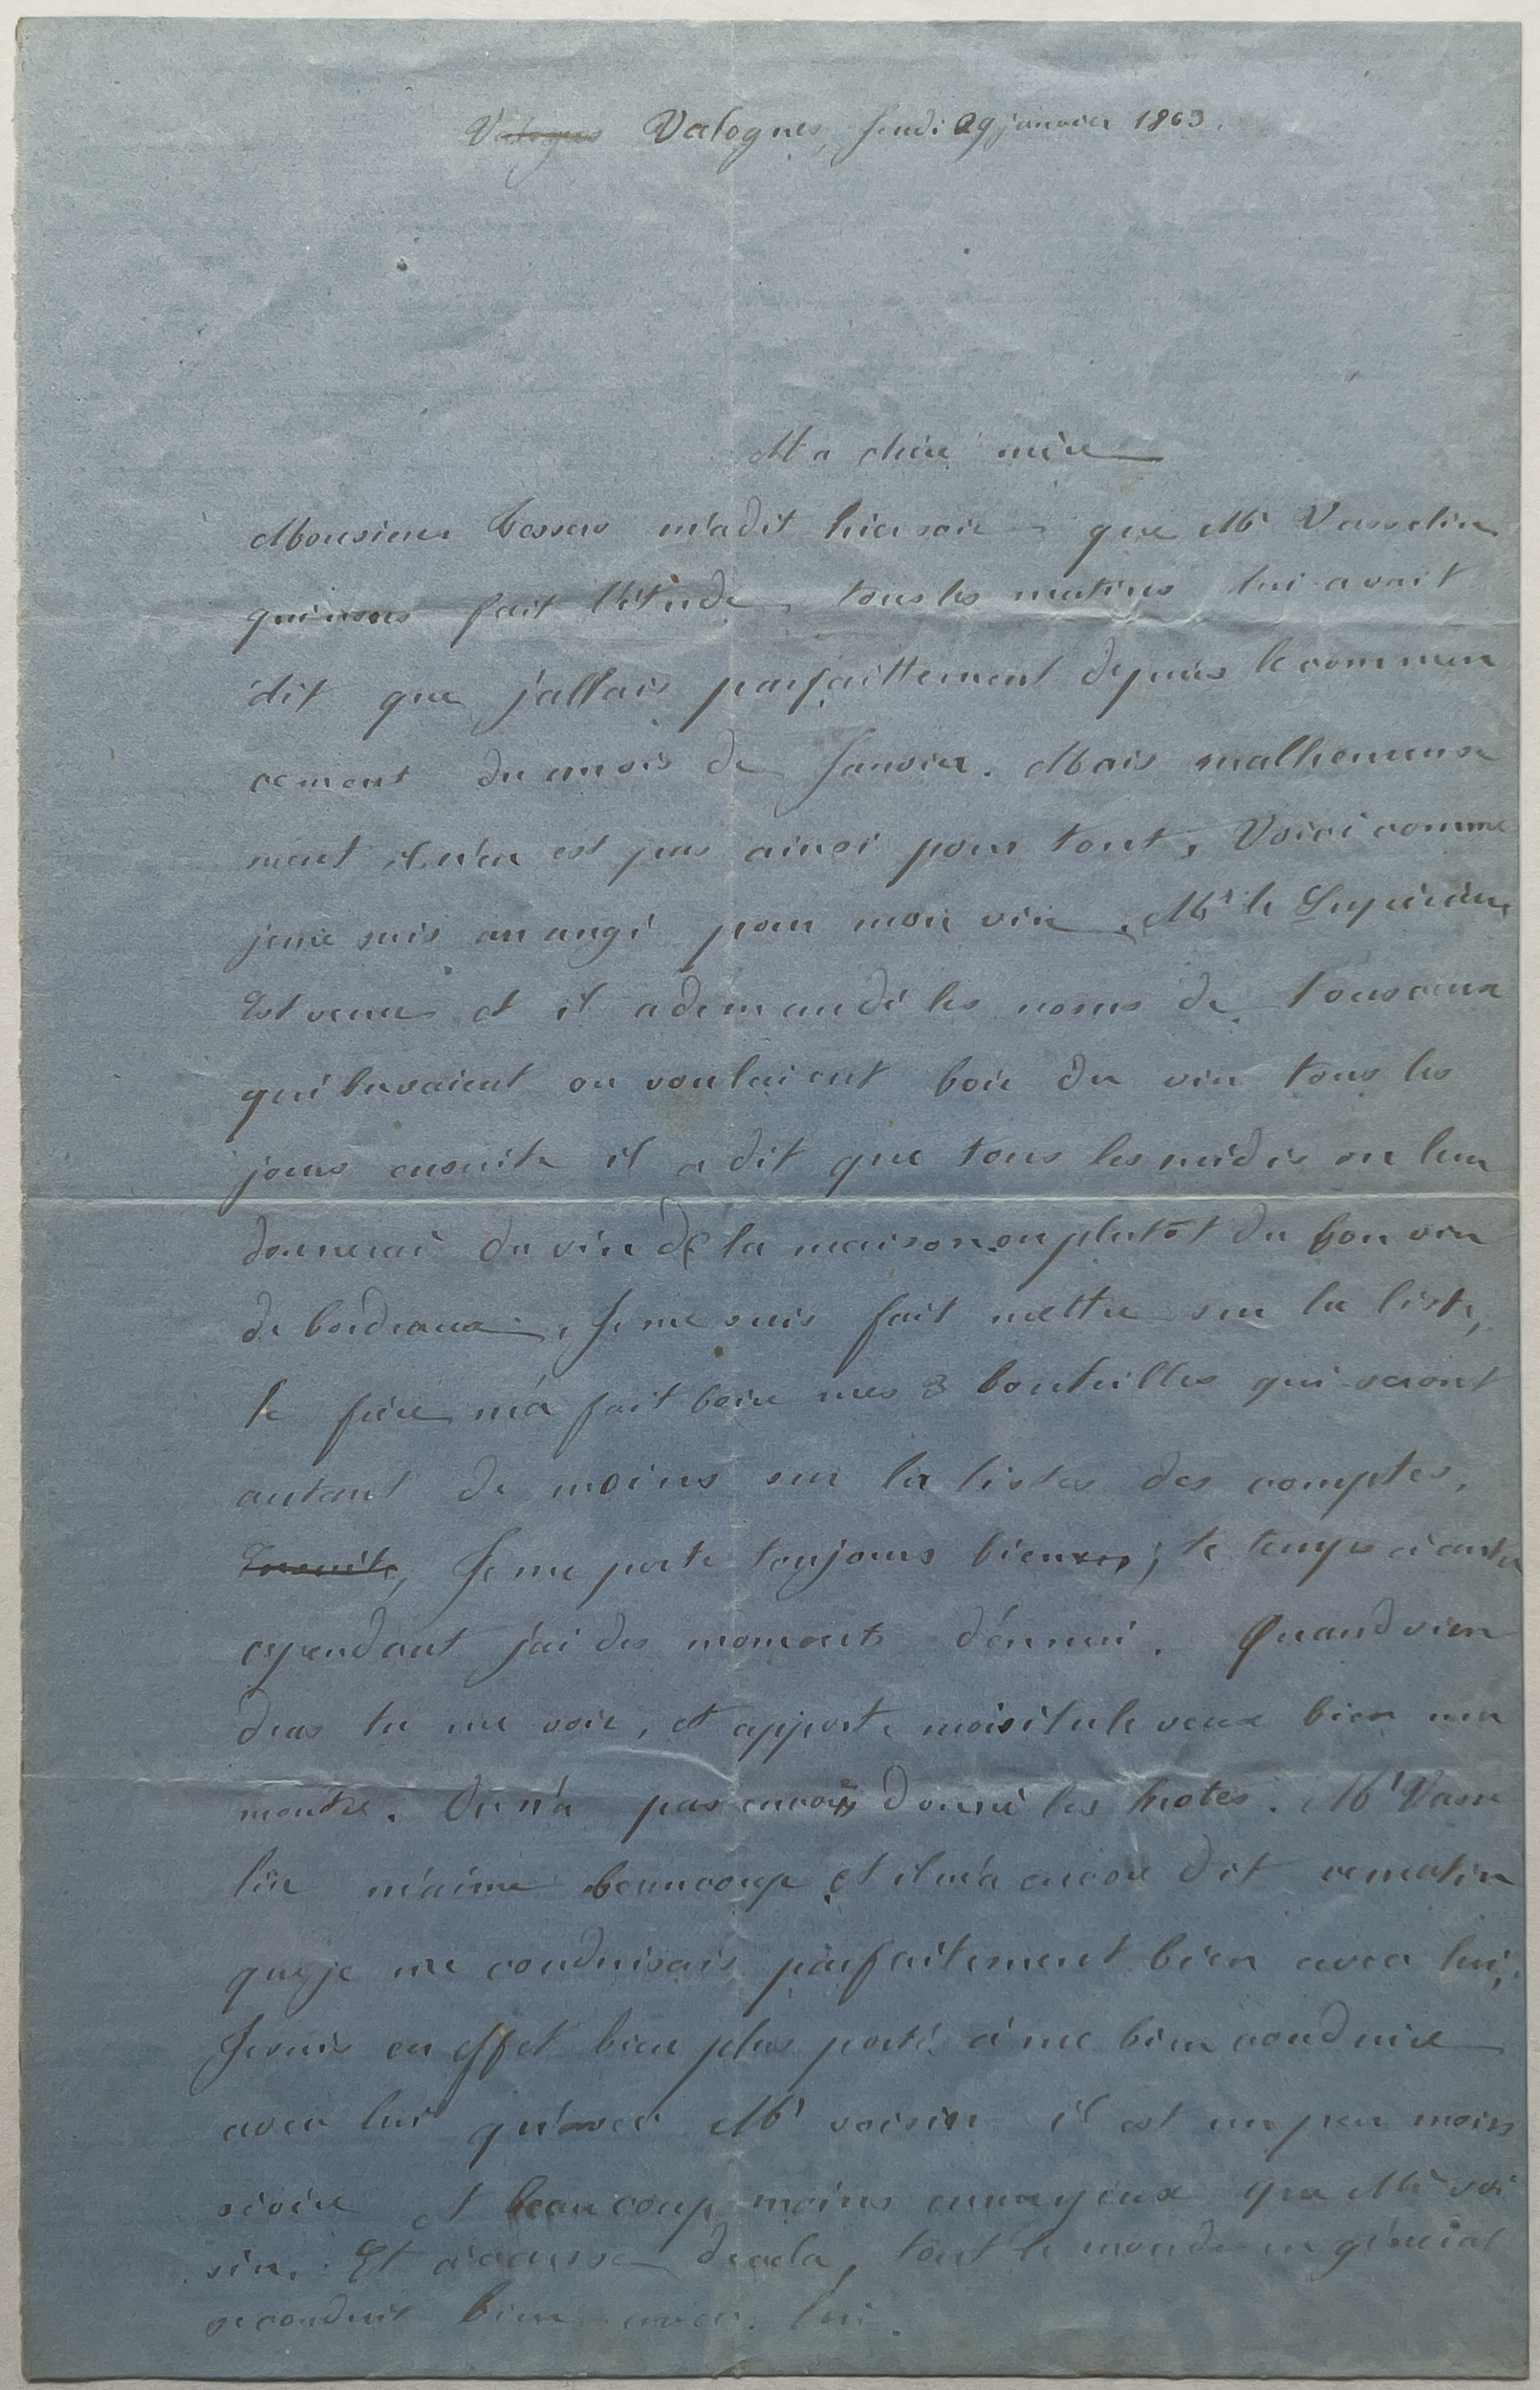 Valognes Valognes, Jeudi 29 janvier 1863.
Ma chère mère
Monsieur m'a dit hier soir que Mr Vasselin
qui nous fait l'étude tous les matins lui avait
dit que j'allais parfaittement depuis le commen
cement du mois de Janvier. Mais malheureuse
ment il n'en est pas ainsi pour tout. Voici comme
je me suis arrangé pour mon vin. Mr le Supérieur
Est venu et il a demandé les noms de tous ceux
qui buvaient ou voulaient boire du vin tous les
jours ensuite il a dit que tous les midis on leur
donnerai du vin de la maison ou plutôt du bon vin
de bordeaux. Je me suis fait mettre sur la liste,
le frère m'a fait boire mes 3 bouteilles qui seront
autant de moins sur la listes des comptes.
Ensuite, Je me porte toujours bien ; le temps
cependant j'ai des moments d'énnui. Quand vien
dras tu me voir, et apporte moi si tu le veux bien ma
montre. On n'a pas encore donné les notes. Mr Vasse
lin m'aime beaucoup et il m'a encore dit ce matin
que je me conduisais parfaitement bien avec lui,
Je suis en effet bien plus porté à me bien conduire
avec lui qu'avec Mr voisin il est un peu moins
sévère et beaucoup moins ennuyeux que Mr voi
sin. Et à cause de cela, tout le monde en général
se conduit bien avec lui.